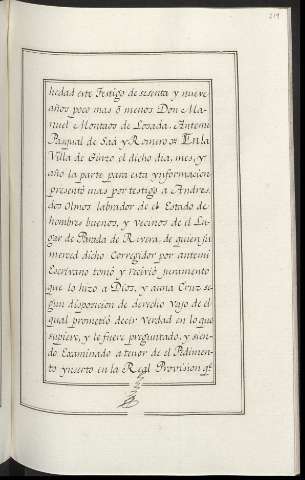 219
hedad este Testigo de sesenta y nueve
años poco mas ò menos. Don Ma-
nuel Montaos de Losada. Antemi
Pasqual de Saà y Romero = En la
Villa de Ginzo el dicho dia, mes, y
año la parte para esta ynformacion
presentò mas por testigo a Andres
dos Olmos labrador de el Estado de
hombres buenos, y vecinos de el Lu-
gar de Parada de Rivera, de quien su
merced dicho Corregidor por antemi
Escrivano tomò y recivio juramento
que lo hizo a Dios, y a una Cruz se-
gun disposicion de derecho vajo de el
qual prometiò decir verdad en lo que
supiere, y le fuere preguntado, y sien-
do Examinado a tenor de el Pedimen-
to ynserto en la Real Provision qe.